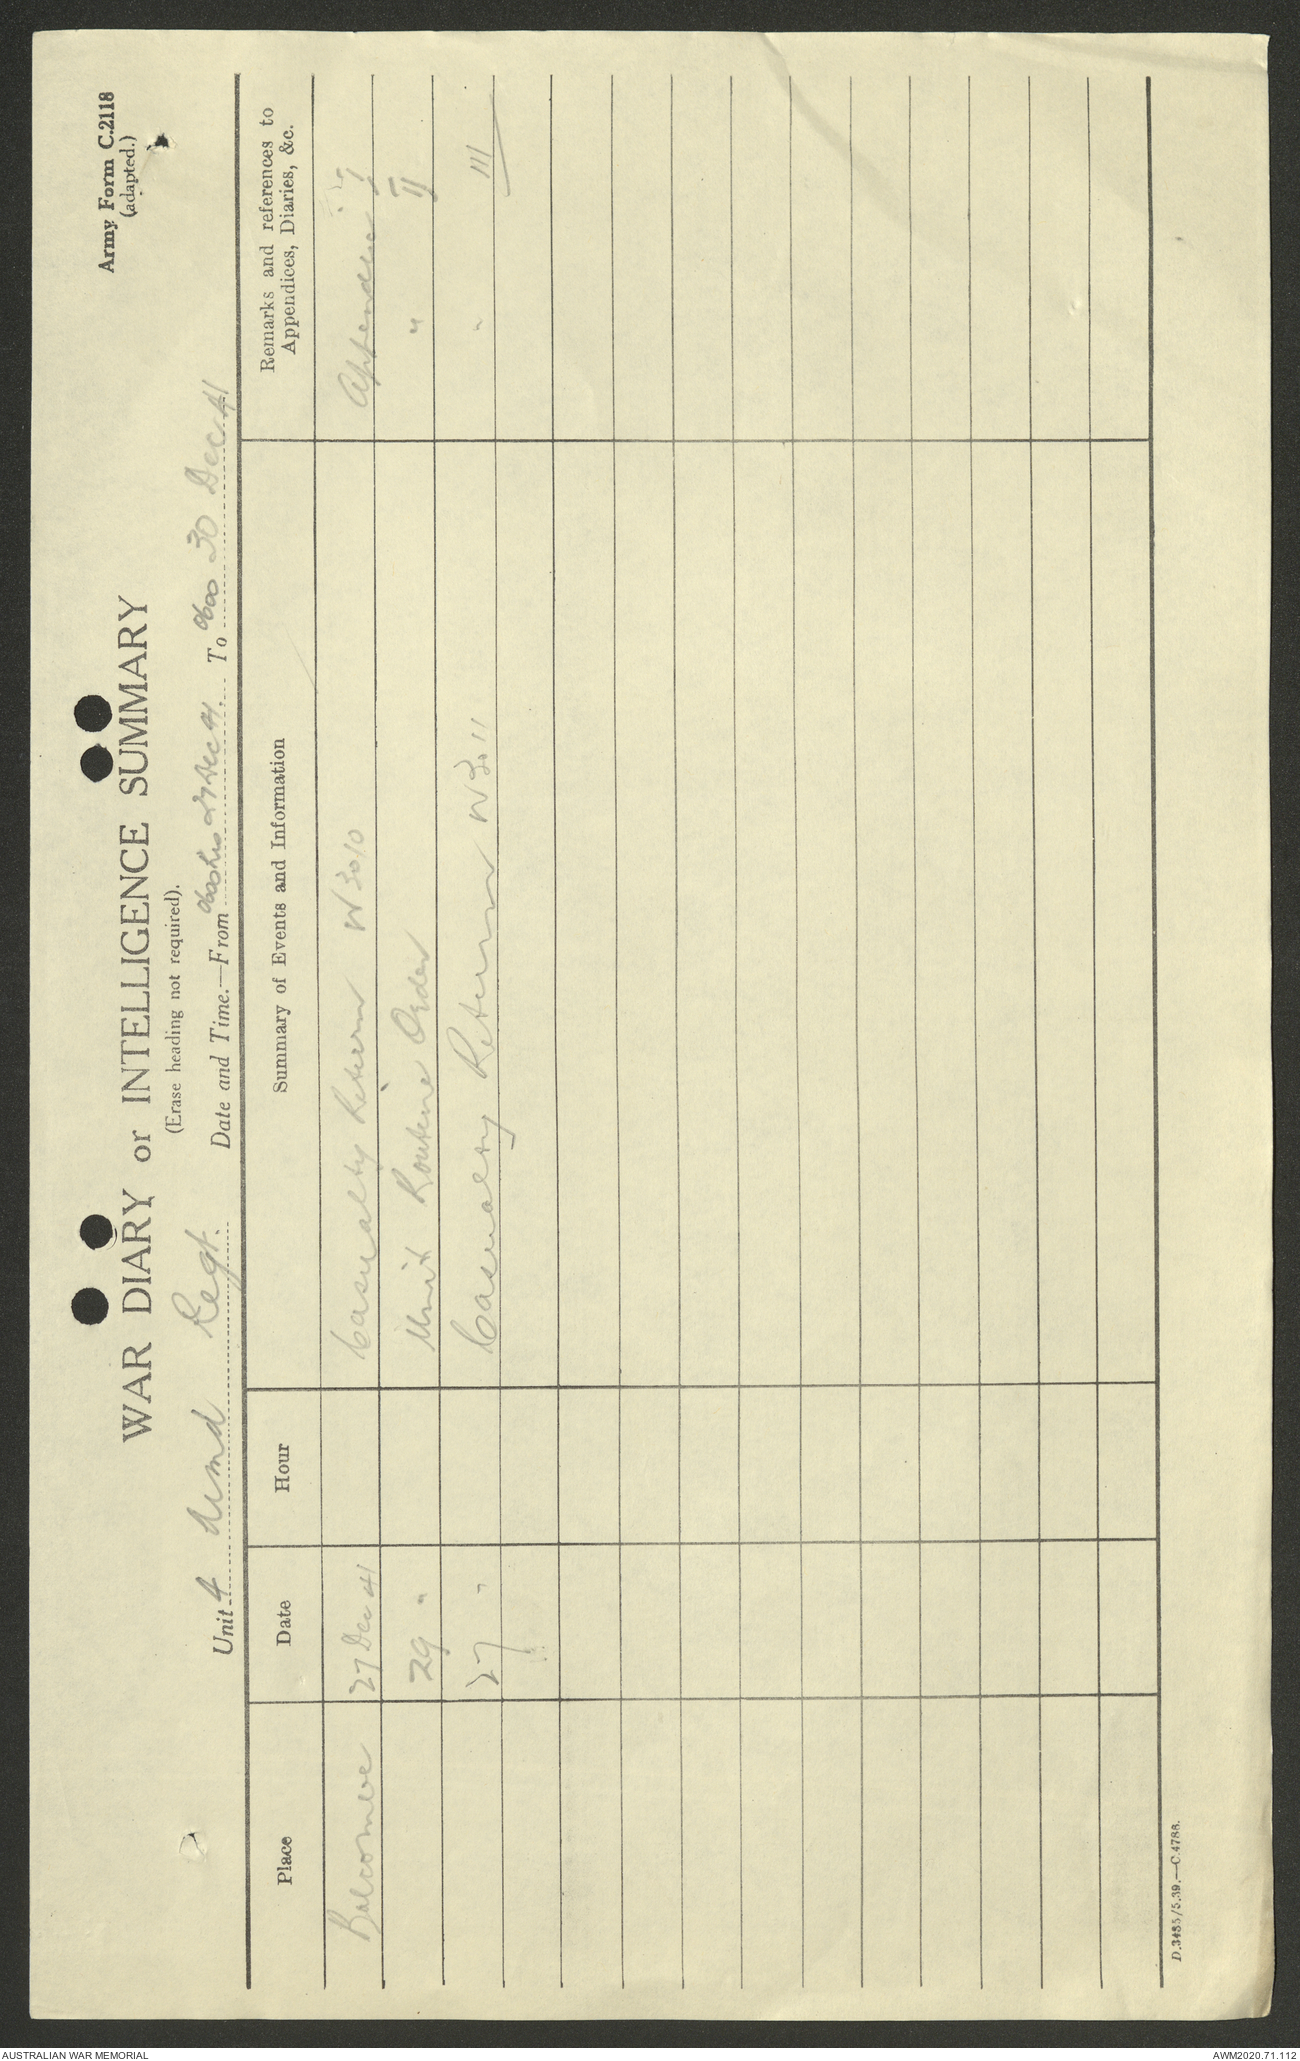 Army Form C.2118
(adapted.)
WAR DIARY or INTELLIGENCE SUMMARY
(Erase heading not required).
Unit 4 Armd Regt. Date and Time.—From 0600hrs 27 Dec 41. To 0600 30 Dec 41
Place Date Hour Summary of Events and Information Remarks and references to Appendices, Diaries, &c.
Balcombe 27 Dec 41 Casualty Return W3010 Appendix I
29 " Unit Routine Order " II
27 " Casualty Return W3011 " III
D.3485/5.39.—C.4788.
AUSTRALIAN WAR MEMORIAL
AWM2020.71.112